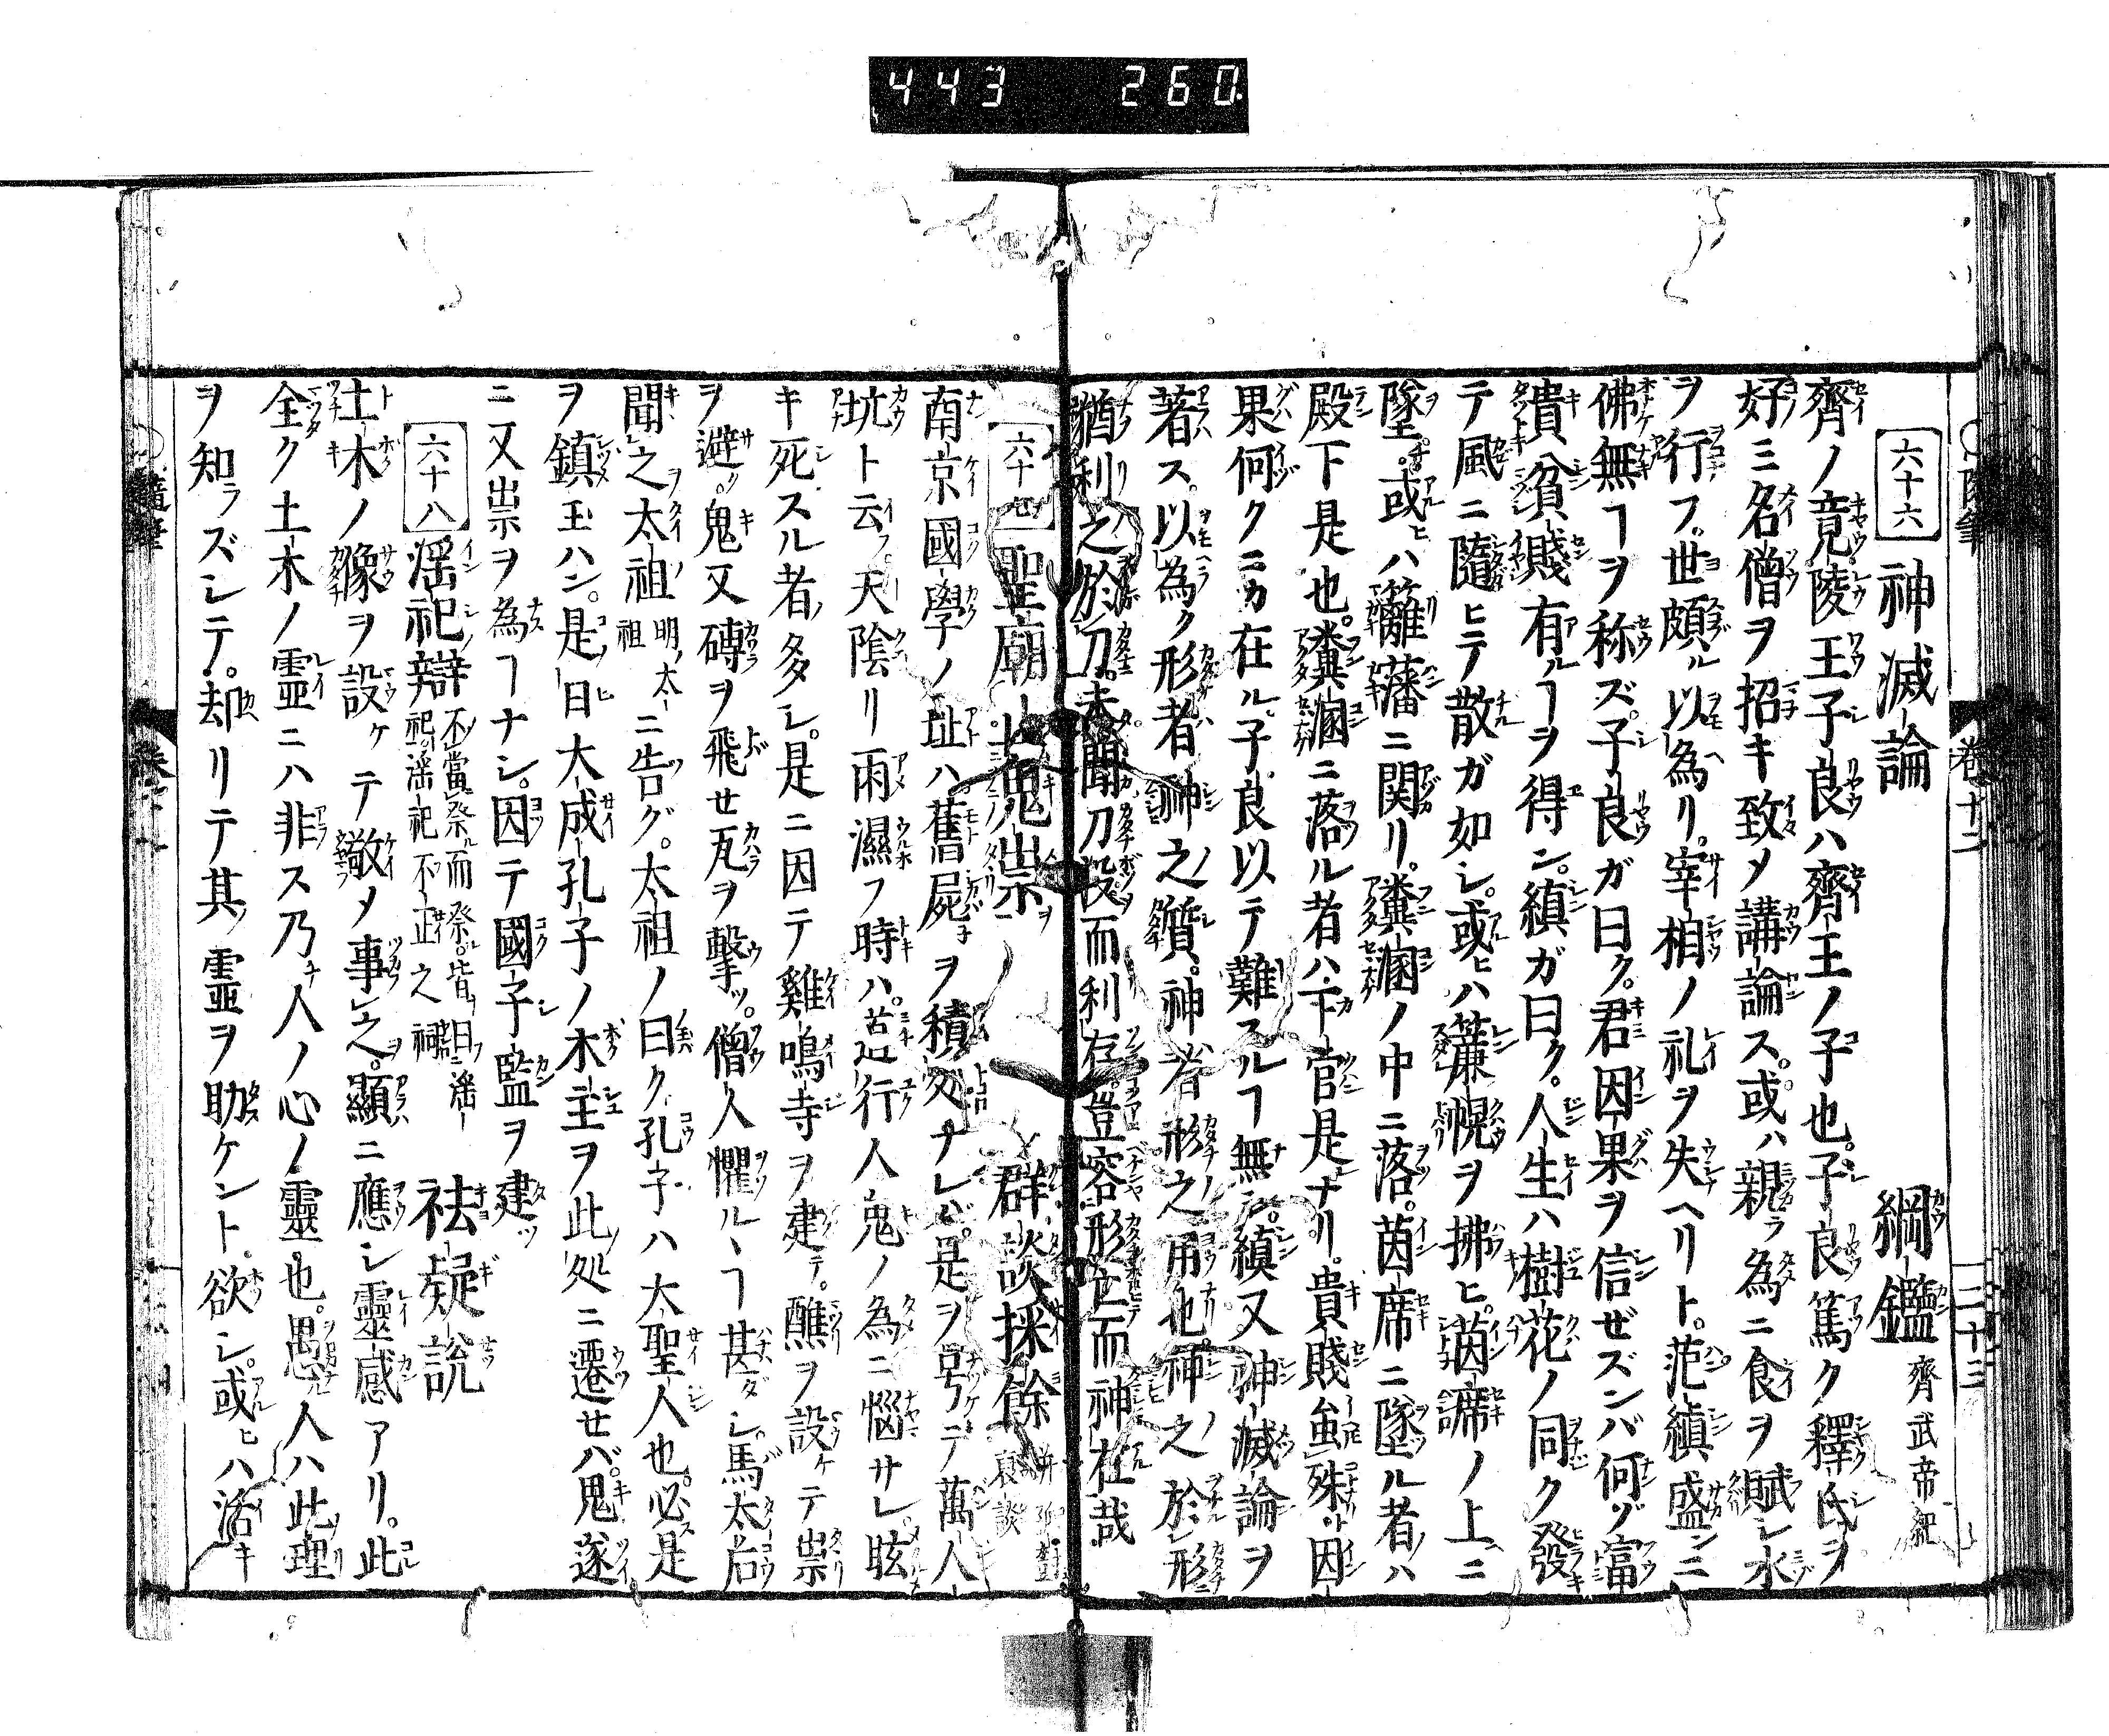 443 260
六十六 神滅論 綱鑑 齊武帝紀
齊ノ竟陵王子良ハ齊王ノ子也。子良篤ク釋氏ヲ
好ミ名僧ヲ招キ致メ講論ス。或ハ親ラ為ニ食ヲ賦シ水
ヲ行フ。世頗ル以為リ。宰相ノ礼ヲ失ヘリト。范縝盛ンニ
佛無ヿヲ称ズ。子良ガ曰ク。君因果ヲ信ゼズンバ何ゾ富
貴貧賤有ルヿヲ得ン。縝ガ曰ク。人生ハ樹花ノ同ク發
テ風ニ隨ヒテ散ガ如シ。或ヒハ簾幌ヲ拂ヒ。茵席ノ上ニ
墜。或ヒハ籬藩ニ関リ。糞溷ノ中ニ落。茵席ニ墜ル者ハ
殿下是也。糞溷ニ落ル者ハ下官是ナリ。貴賤虽殊ト因
果何クニカ在ル。子良以テ難スルヿ無シ。縝又神滅論ヲ
著ス。以為ク形者神之質。神者形之用也。神之於形
猶利之於刀。未聞刀没而利存。豈容形亡而神在哉
六十七 聖廟ノ鬼祟 群談採餘
南京國學ノ址ハ舊屍ヲ積処ナレバ。是ヲ号テ萬人
坑ト云フ。天陰リ雨濕フ時ハ。行人鬼ノ為ニ惱サレ。眩
キ死スル者多シ。是ニ因テ雞鳴寺ヲ建テ。醮ヲ設ケテ祟
ヲ避ク。鬼又磚ヲ飛セ瓦ヲ擊ッ。僧人懼ルヽヿ甚ダシ。馬太后
聞之太祖明ノ太祖ニ告グ。太祖ノ曰ク孔子ハ大聖人也。必是
ヲ鎮玉ハン。是日大成孔子ノ木主ヲ此処ニ遷セバ。鬼遂
ニ又祟ヲ為ヿナシ。因テ國子監ヲ建ッ
六十八 淫祀辯 不當祭而祭。皆曰淫祀。淫祀不正之祠 祛疑說
土木ノ像ヲ設ケテ敬メ事之。顯ニ應シ靈感アリ。此
全ク土木ノ霊ニハ非ス乃チ人ノ心ノ靈也。愚ナル人ハ此理
ヲ知ラズシテ。却リテ其ノ霊ヲ助ケント欲シ。或ヒハ活キ